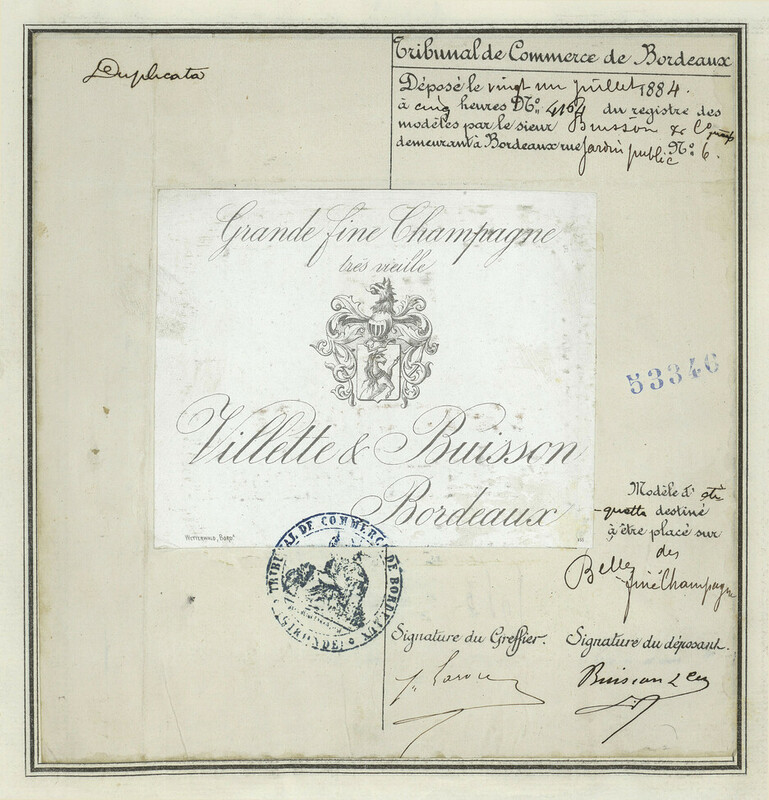 Duplicata
Tribunal de Commerce de Bordeaux
Déposé le vingt un juillet 1884.
à cinq heures No. 4164 du registre des
modèles par le sieur Buisson & Comp
demeurant à Bordeaux rue Jardin public No. 6.
Grande fine Champagne
très vieille
53346
Villette & Buisson
Bordeaux
Modèle d' éti
-quette destiné
à être placé sur
des
Belles
fine Champagne
WETTERWALD, BORDX
TRIBUNAL DE COMMERCE DE BORDEAUX
(GIRONDE)
Signature du Greffier. Signature du déposant.
Buisson & Cie